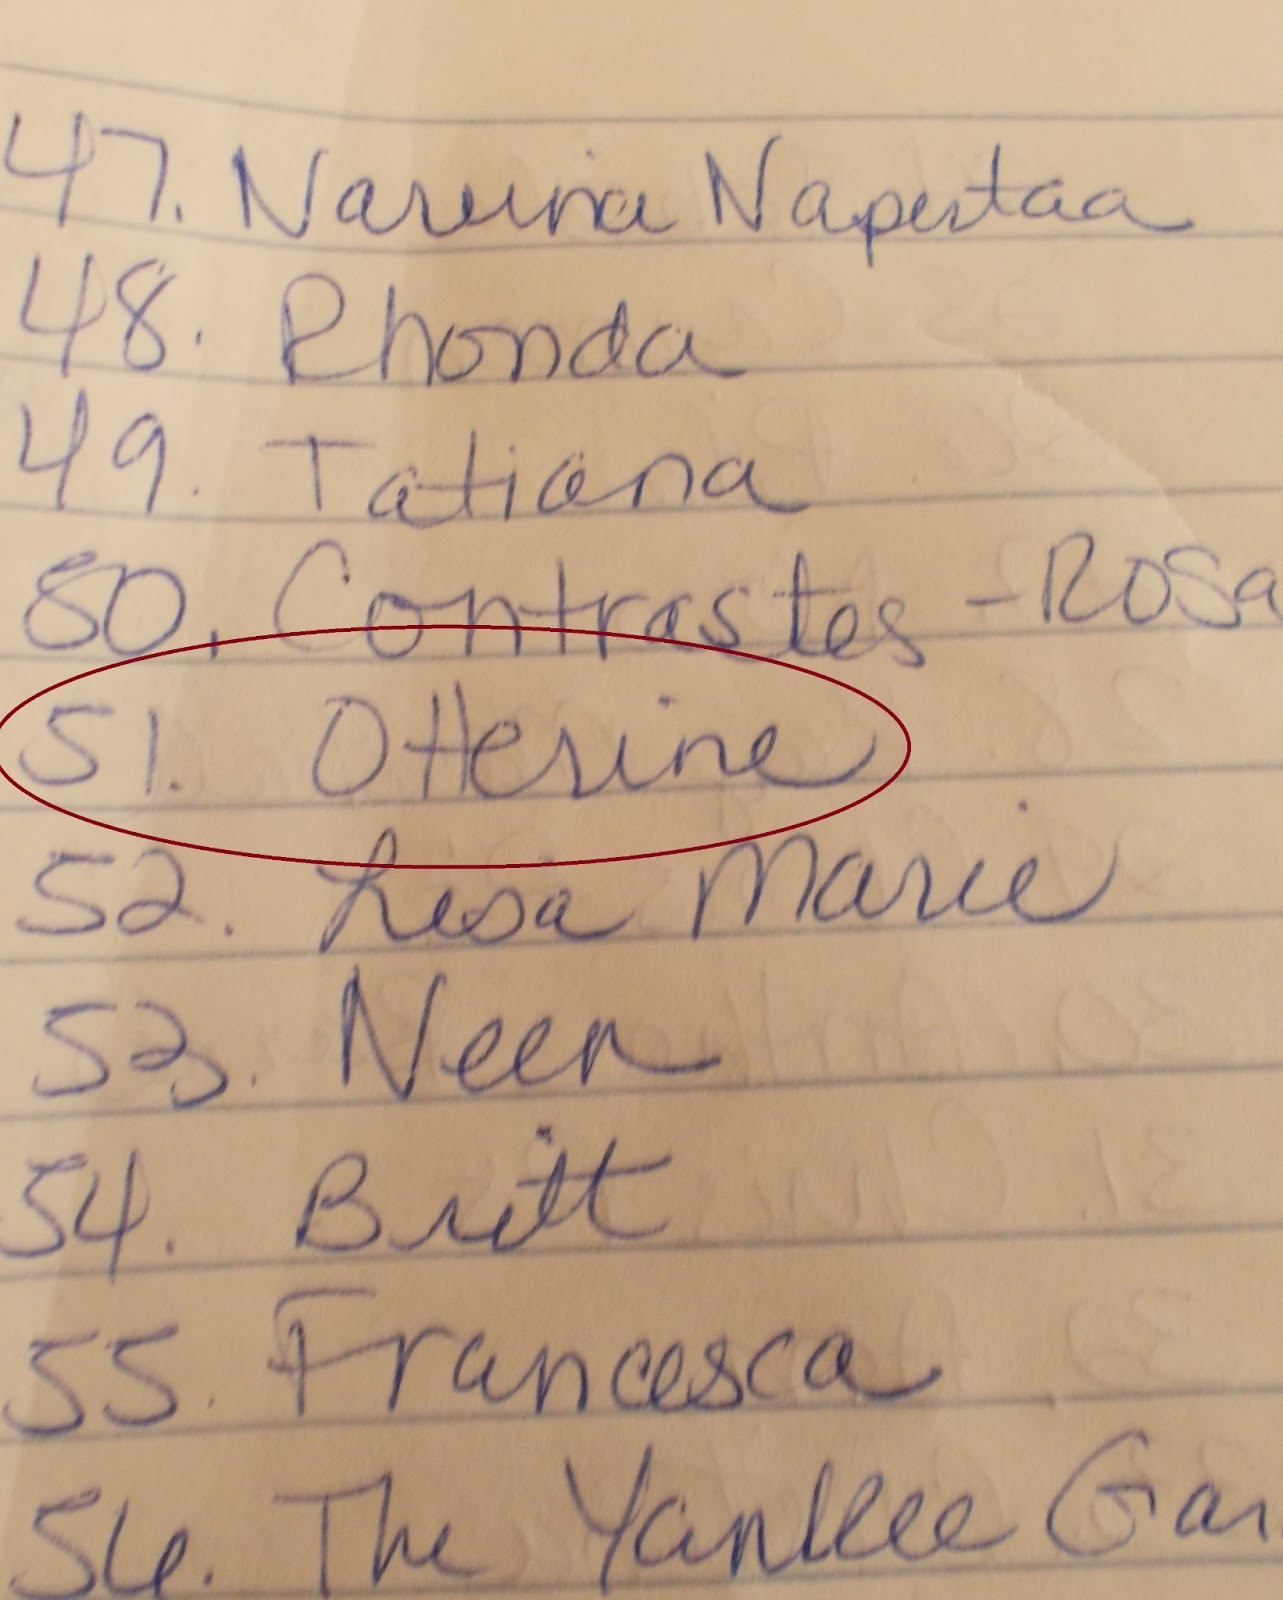 47. Narvina Napertaa
48. Rhonda
49. Tatiana
50. Contrastes - Rosa
51. Otterine
52. Lisa Marie
53. Neen
54. Britt
55. Francesca
56. The Yankee Gar